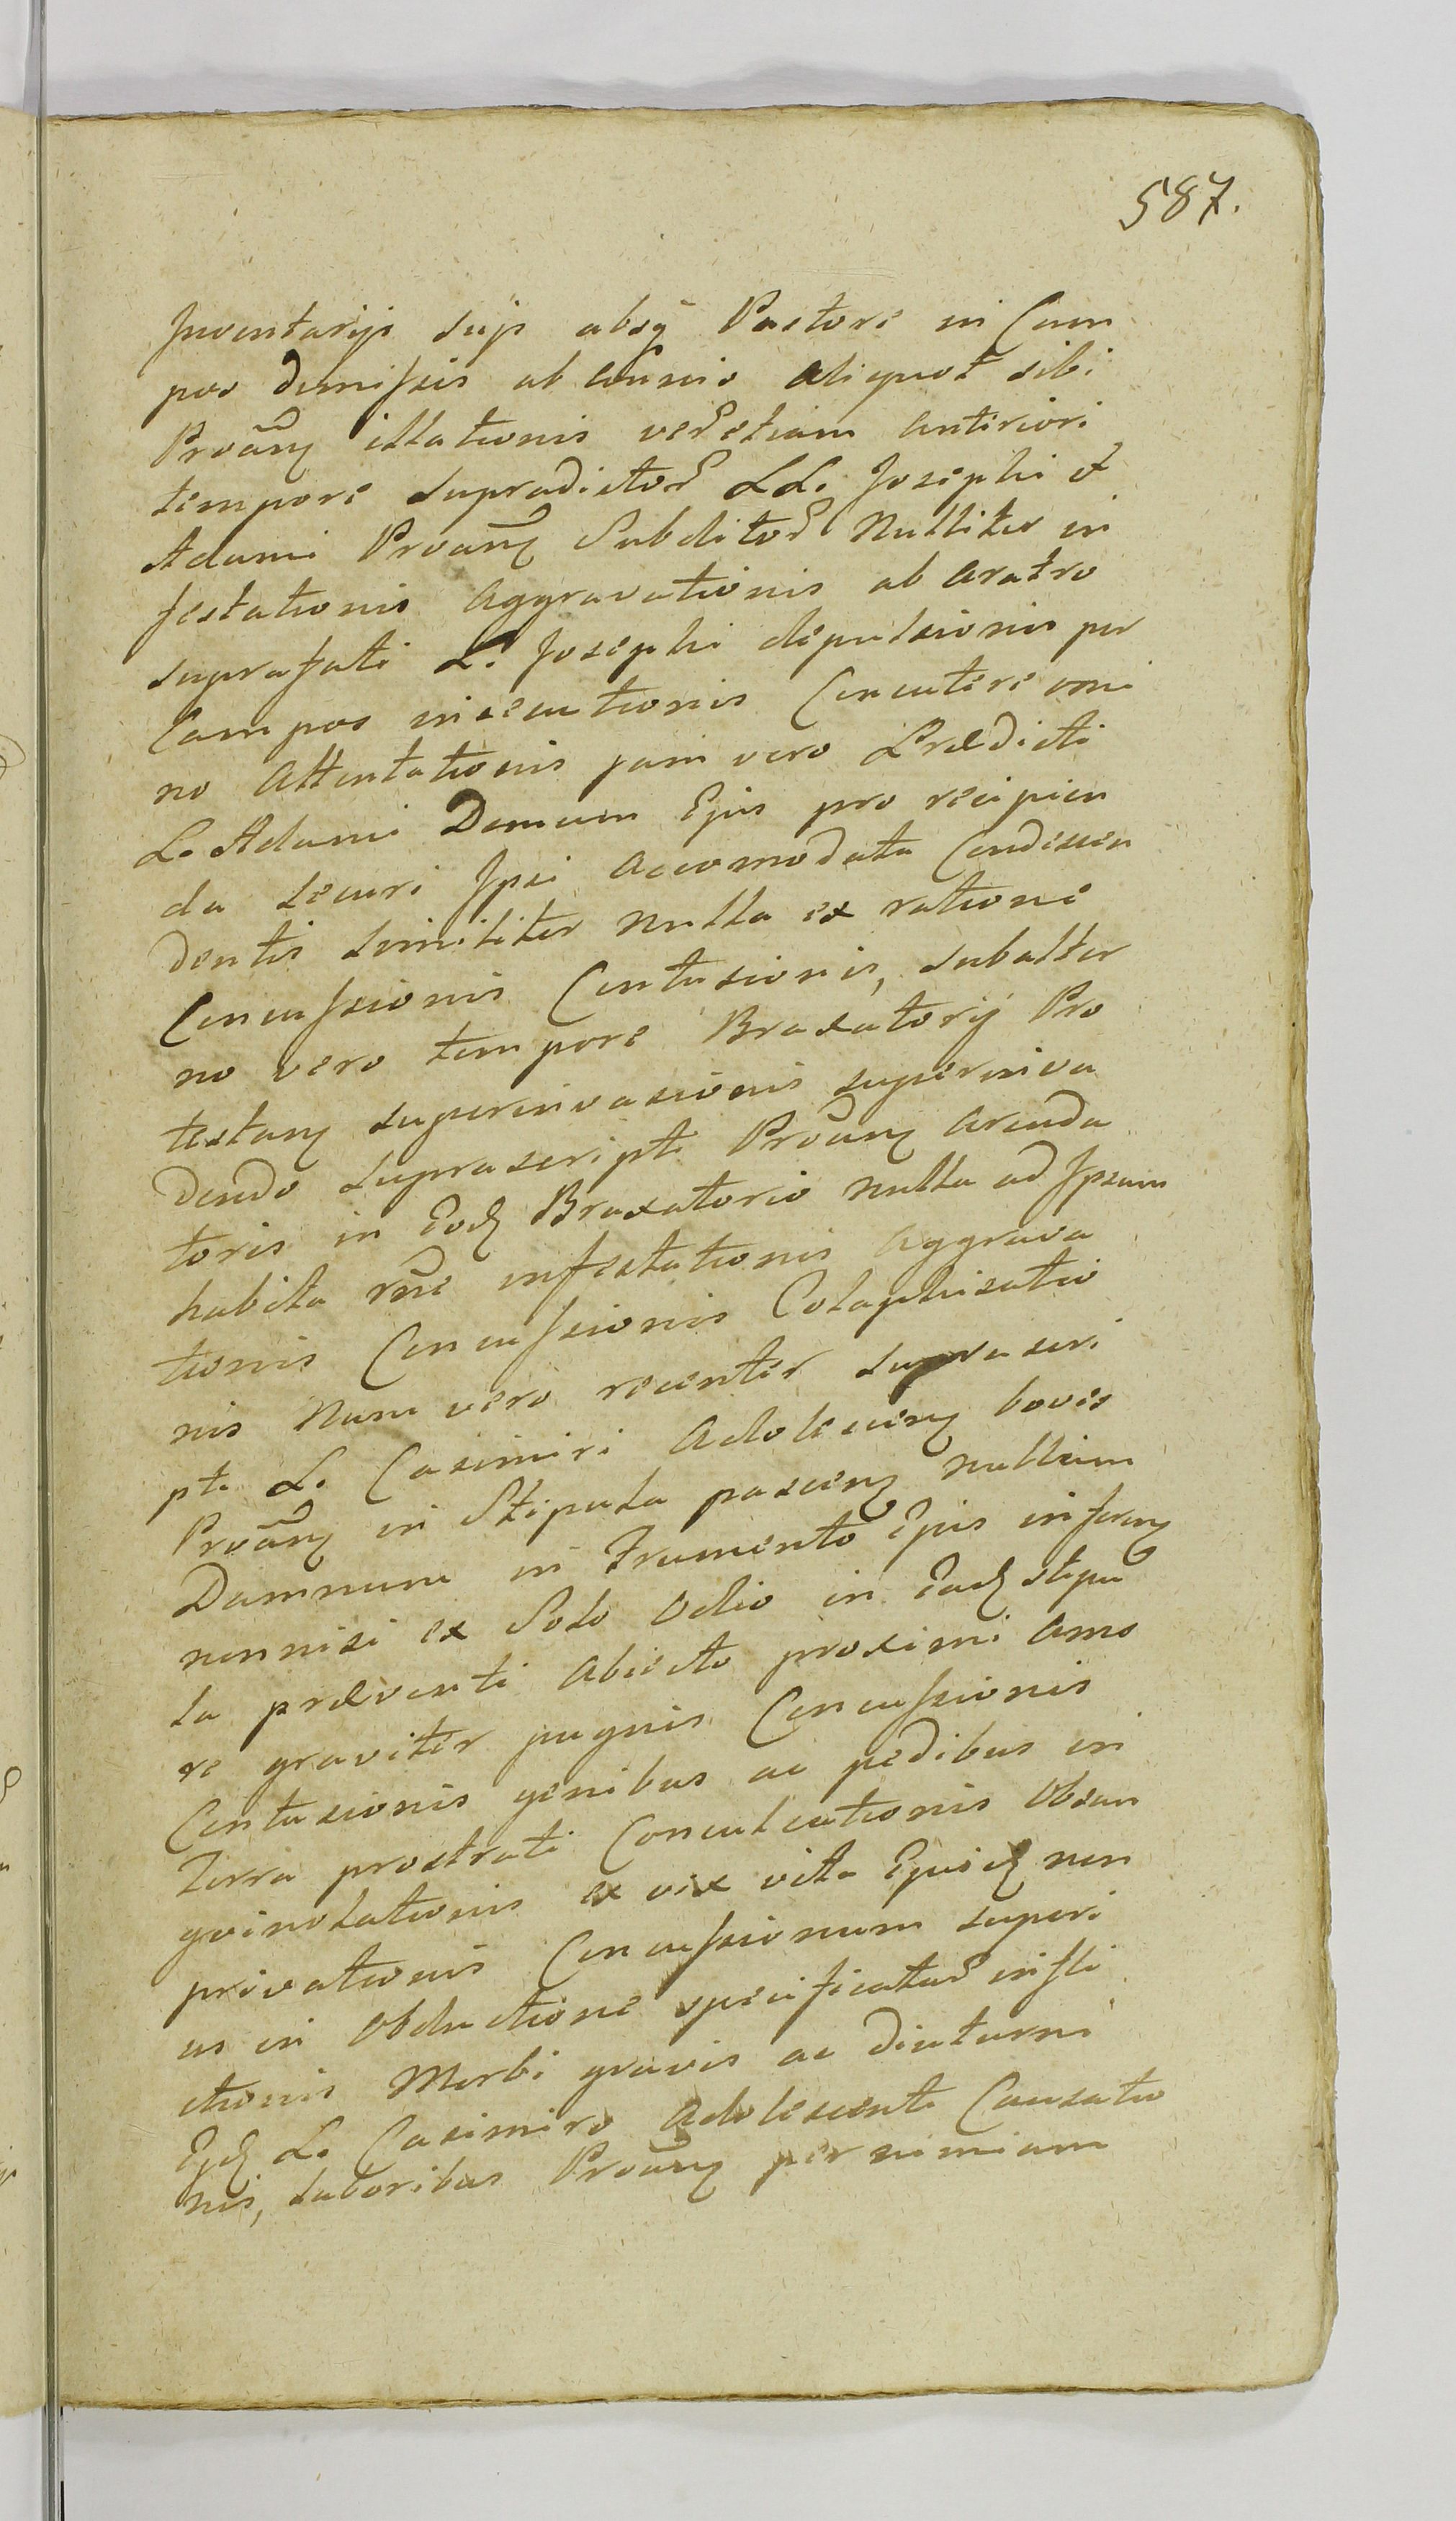 587.
Inventarijs suis absq Pastore in Cam
pos dimissis ab ansis aliquot sibi
Proãnƺ illationis verũ etiam anteriori
tempore supradictor LL. Josephi et
Adami Proanƺ Subditor Nulliter in
festationis Aggravationis ab aratro
suprafati L. Josephi depulsionis per
Campos insecutionis Concutere omi
no Attentationis jam vero Prædicti
L. Adami Domum Ejus pro recipien
da securi Ipsi Accomodata Condescen
dentis similiter nulla ex ratione
Concussionis Contusionis, subalter
no vero tempore Braxatorij Pro
testanƺ superinvasionis superinva
dendo suprascripti Proãnƺ Arenda
toris in Eodƺ Braxatorio nulla ad Ipsum
habita rñe infestationis Aggrava
tionis Concussionis Colaphisatio
nis Num vero recenter suprascri
pti L. Casimiri Adolescenƺ boves
Proãnƺ in Stipula pascenƺ nullum
Damnum in Frumento Ejus inferenƺ
nonnisi ex Solo Odio in Eadƺ stipu
la præventi Abiecto proximi Amo
re graviter pugnis Concussionis
Contusionis genibus ac pedibus in
Terra prostrati Conculcationis Obsan
gvinolationis ex vix vita Ejusdƺ non
privationis Concussionum superi
us in Obductione specificatar infli
ctionis Morbi gravis ac Diuturni
Ejdƺ L. Casimiro Adolescenti Causatio
nis, laboribus Proãnƺ per nimiam